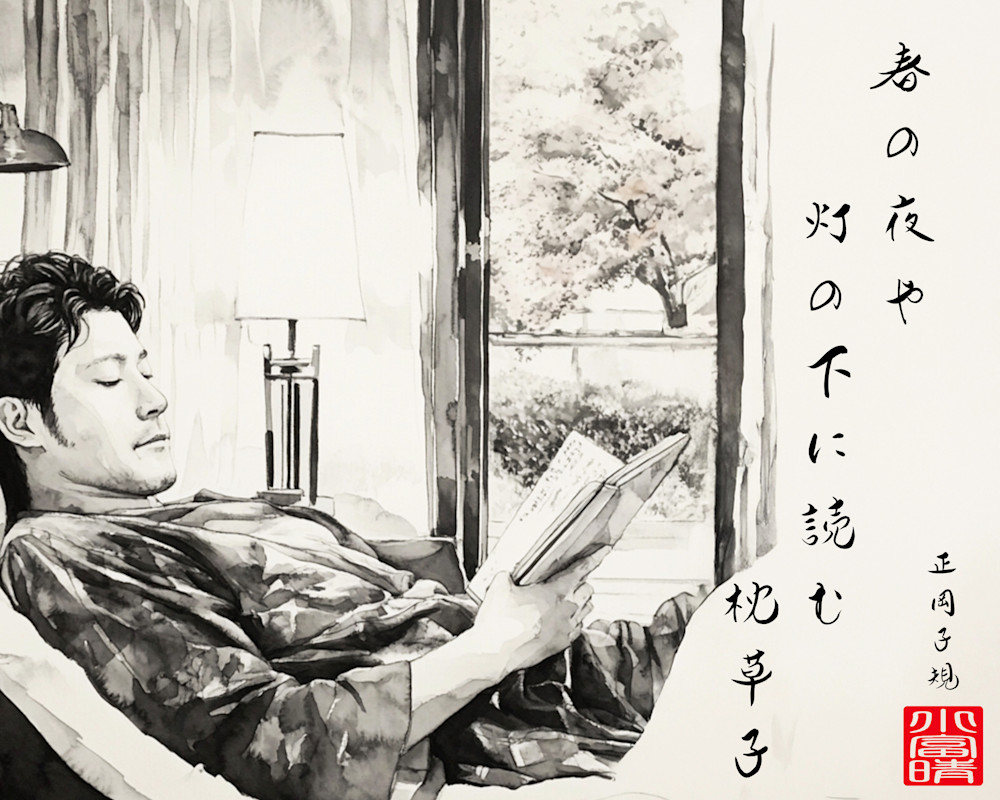 春の夜や
灯の下に読む
枕草子
正岡子規
小富晴